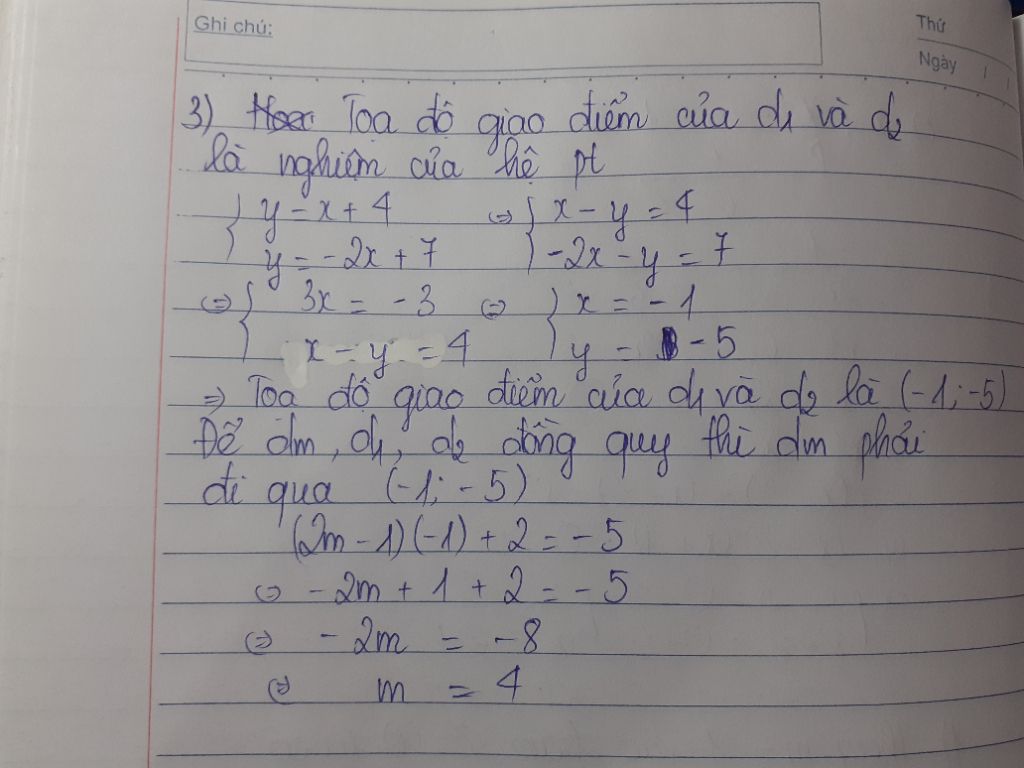 Ghi chú:
Thứ
Ngày / /
3) Toạ độ giao điểm của d1 và d2
là nghiệm của hệ pt
{ y = x + 4 ⇔ { x - y = 4
{ y = -2x + 7 { -2x - y = 7
⇔ { 3x = -3 ⇔ { x = -1
{ x - y = 4 { y = -5
⇒ Toạ độ giao điểm của d1 và d2 là (-1; -5)
Để dm, d1, d2 đồng quy thì dm phải
đi qua (-1; -5)
(2m - 1)(-1) + 2 = -5
⇔ -2m + 1 + 2 = -5
⇔ -2m = -8
⇔ m = 4